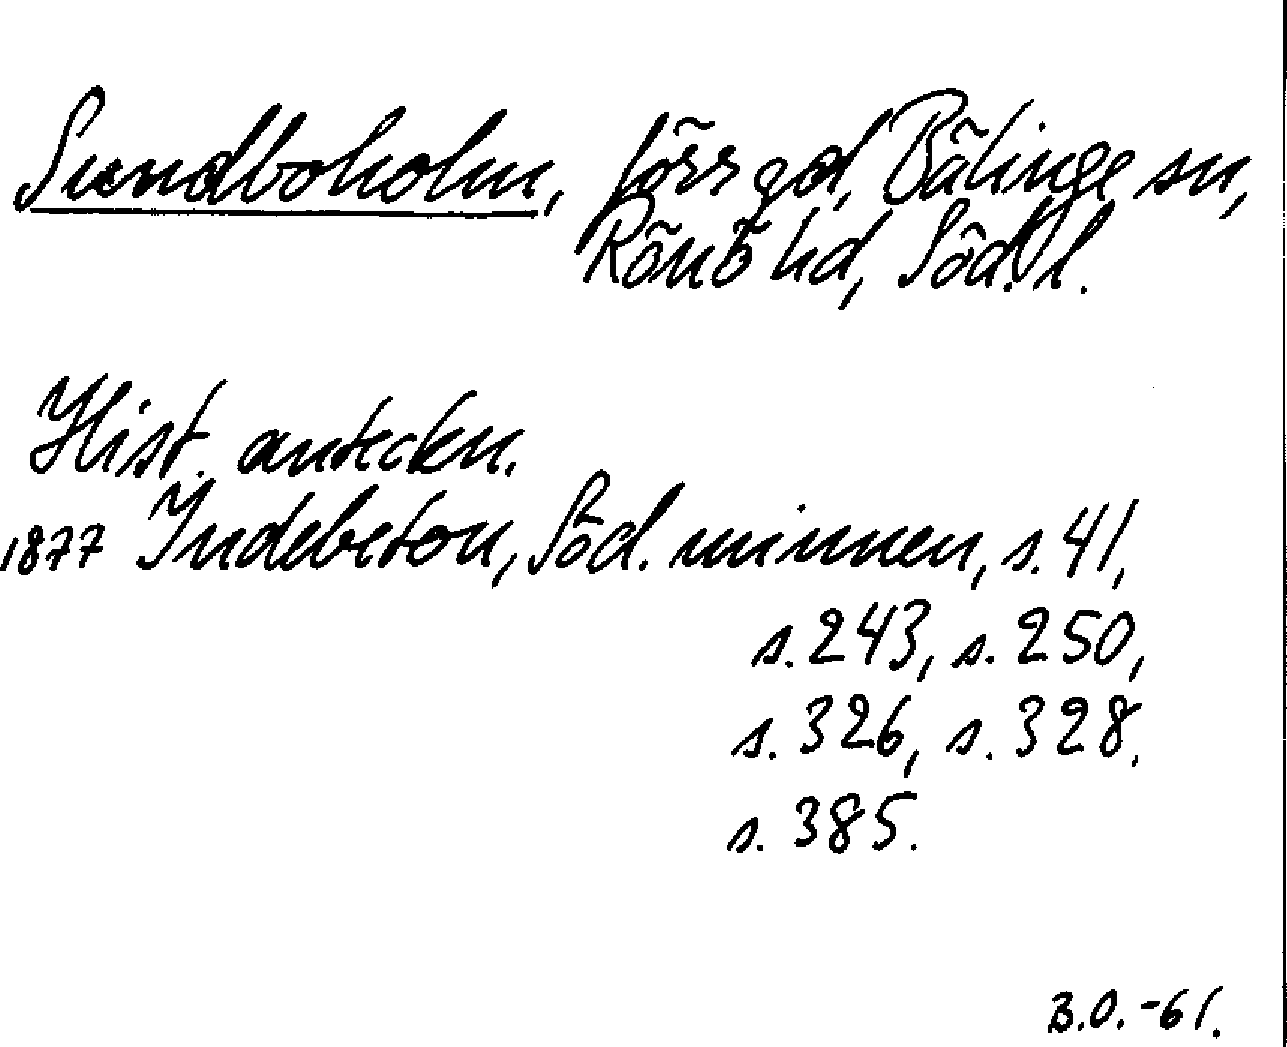 Sundboholm, förr gd, Bälinge sn,
Rönö hd, Söd. l.
Hist. anteckn.
1877 Indebetou, Söd. minnen, s. 41,
s. 243, s. 250,
s. 326, s. 328,
s. 385.
B.O. -61.